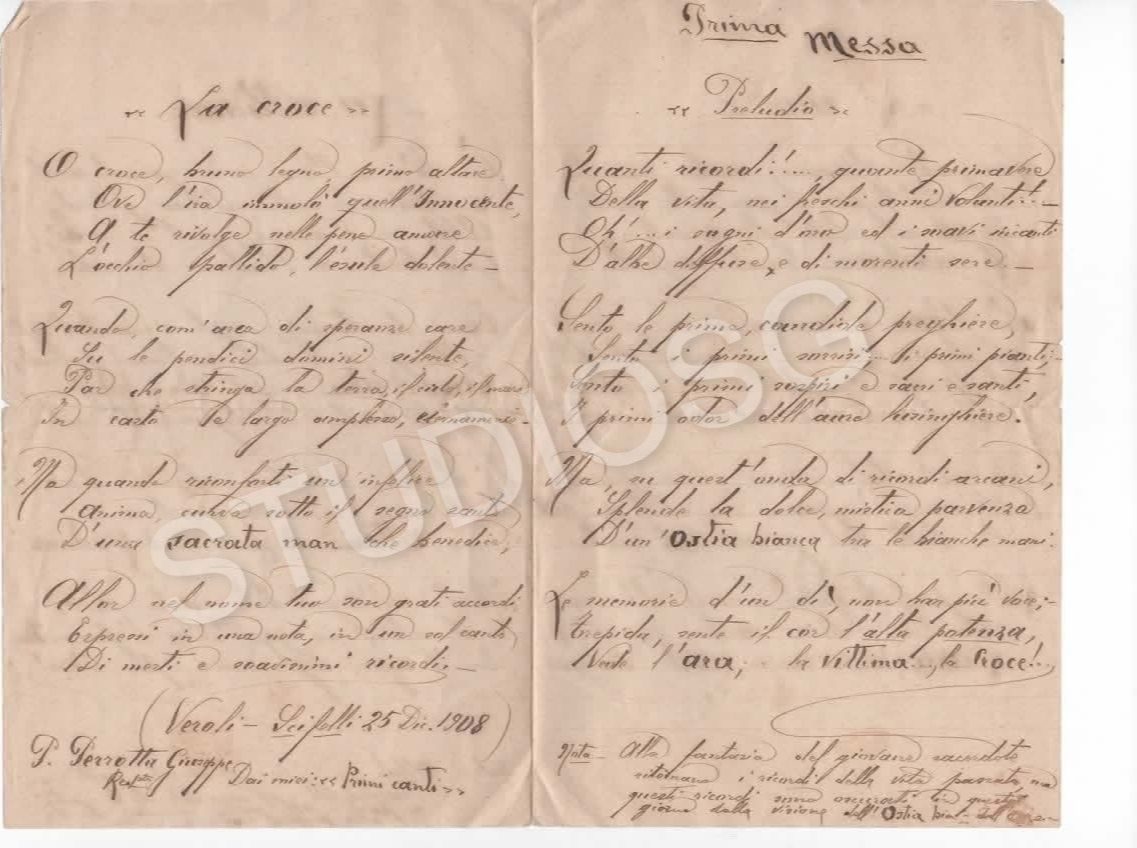 « La croce »
O croce, bruno legno, primo altare
Ove l'ira immolò quell'Innocente,
A te rivolge nelle pene amare
L'occhio pallido, l'esule dolente –
Quando, com'arca di speranze care
Su le pendici domini silente,
Par che stringa la terra, il cielo, il mare
In casto e largo amplesso,
Ma quando riconforti un infelice
Anima curva sotto il segno santo
D'una sacrata man che benedice,
Allor nel nome tuo son grati accordi
Espressi in una nota, in un sol canto
Di mesti e soavissimi ricordi. –
(Veroli – Scifelli 25 Dic. 1908)
P. Perrotta Giuseppe
Dai miei: « Primi canti »
Prima Messa
« Preludio »
Quanti ricordi!...., quante primavere
Della vita, nei freschi anni volanti!..–
Oh!... i sogni d'oro ed i soavi incanti
D'albe diffuse, e di morenti sere. –
Sento, le prime, candide preghiere,
Sento i primi sorrisi... i primi pianti,–
Sento i primi sospiri e sacri e santi,
I primi odor dell'aure lusinghiere.
Ma, su quest'onda di ricordi arcani,
Splende la dolce, mistica parvenza
D'un'Ostia bianca tra le bianche mani.
Le memorie d'un dì, non han più voce;–
Trepida, sente il cor l'alta potenza,
Vede l'ara, – la vittima..., la Croce!...
Nota – Alla fantasia del giovane sacerdote
ritornano i ricordi della vita passata, ma
questi ricordi sono oscurati in questo
giorno dalla visione dell'Ostia
STUDIOSG